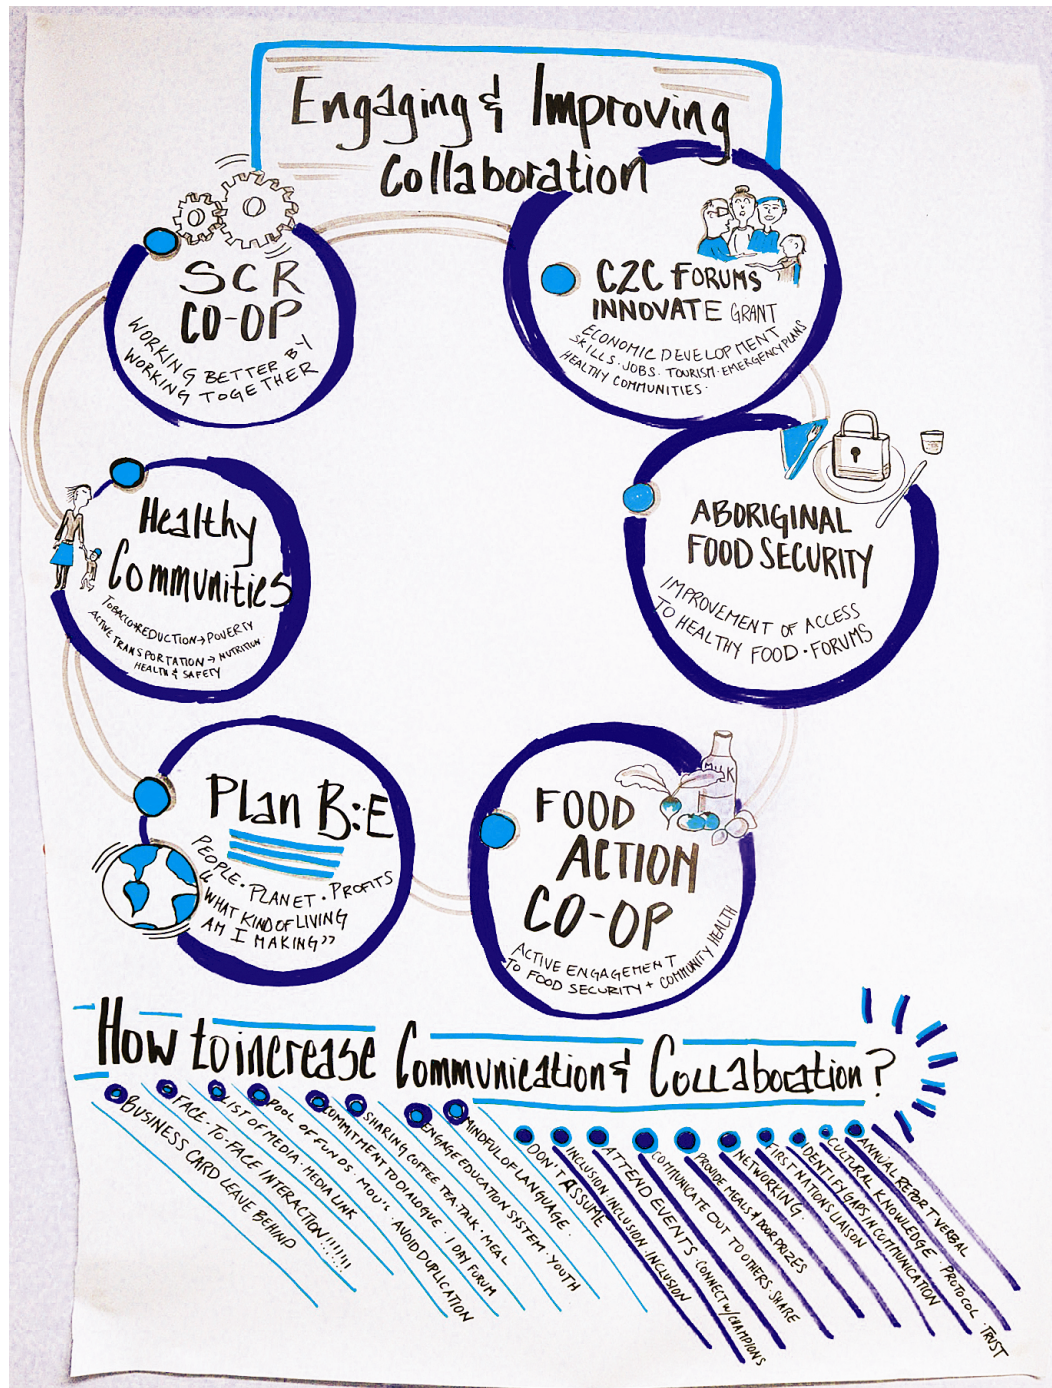 Engaging & Improving
Collaboration
SCR
CO-OP
WORKING BETTER BY
WORKING TOGETHER
C2C FORUMS
INNOVATE GRANT
ECONOMIC DEVELOPMENT
SKILLS · JOBS · TOURISM · EMERGENCY PLANS
HEALTHY COMMUNITIES ·
Healthy
Communities
TOBACCO → REDUCTION → POVERTY
ACTIVE TRANSPORTATION → NUTRITION
HEALTH & SAFETY
ABORIGINAL
FOOD SECURITY
IMPROVEMENT OF ACCESS
TO HEALTHY FOOD · FORUMS
Plan B:E
PEOPLE · PLANET · PROFITS
"WHAT KIND OF LIVING
AM I MAKING"
MILK
FOOD
ACTION
CO-OP
ACTIVE ENGAGEMENT
TO FOOD SECURITY + COMMUNITY HEALTH
How to increase Communication & Collaboration?
BUSINESS CARD LEAVE BEHIND
FACE-TO-FACE INTERACTION!!!!!!!
LIST OF MEDIA · MEDIA LINK
POOL OF FUNDS · MOU's · AVOID DUPLICATION
COMMITMENT TO DIALOGUE · 1 DAY FORUM
SHARING COFFEE TEA · TALK · MEAL
ENGAGE EDUCATION SYSTEM · YOUTH
MINDFUL OF LANGUAGE ·
DON'T ASSUME
INCLUSION · INCLUSION · INCLUSION
ATTEND EVENTS · CONNECT w/ CHAMPIONS
COMMUNICATE OUT TO OTHERS · SHARE
PROVIDE MEALS & DOOR PRIZES
NETWORKING ·
FIRST NATIONS LIAISON
IDENTIFY GAPS IN COMMUNICATION
CULTURAL KNOWLEDGE · PROTOCOL · TRUST
ANNUAL REPORT · VERBAL